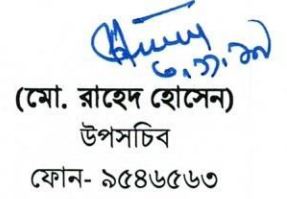 ৩.১১.১৯
(মো. রাহেদ হোসেন)
উপসচিব
ফোন- ৯৫৪৬৫৬৩